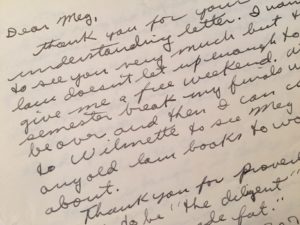 Dear Meg,
Thank you for your
understanding letter. I
to see you very much but
law doesn't let up enough to
give me a free weekend.
semester break my funds
be over and then I can
to Wilmette to see Meg
any old law books to
about.
Thank you for
to be "the diligent"
fat."